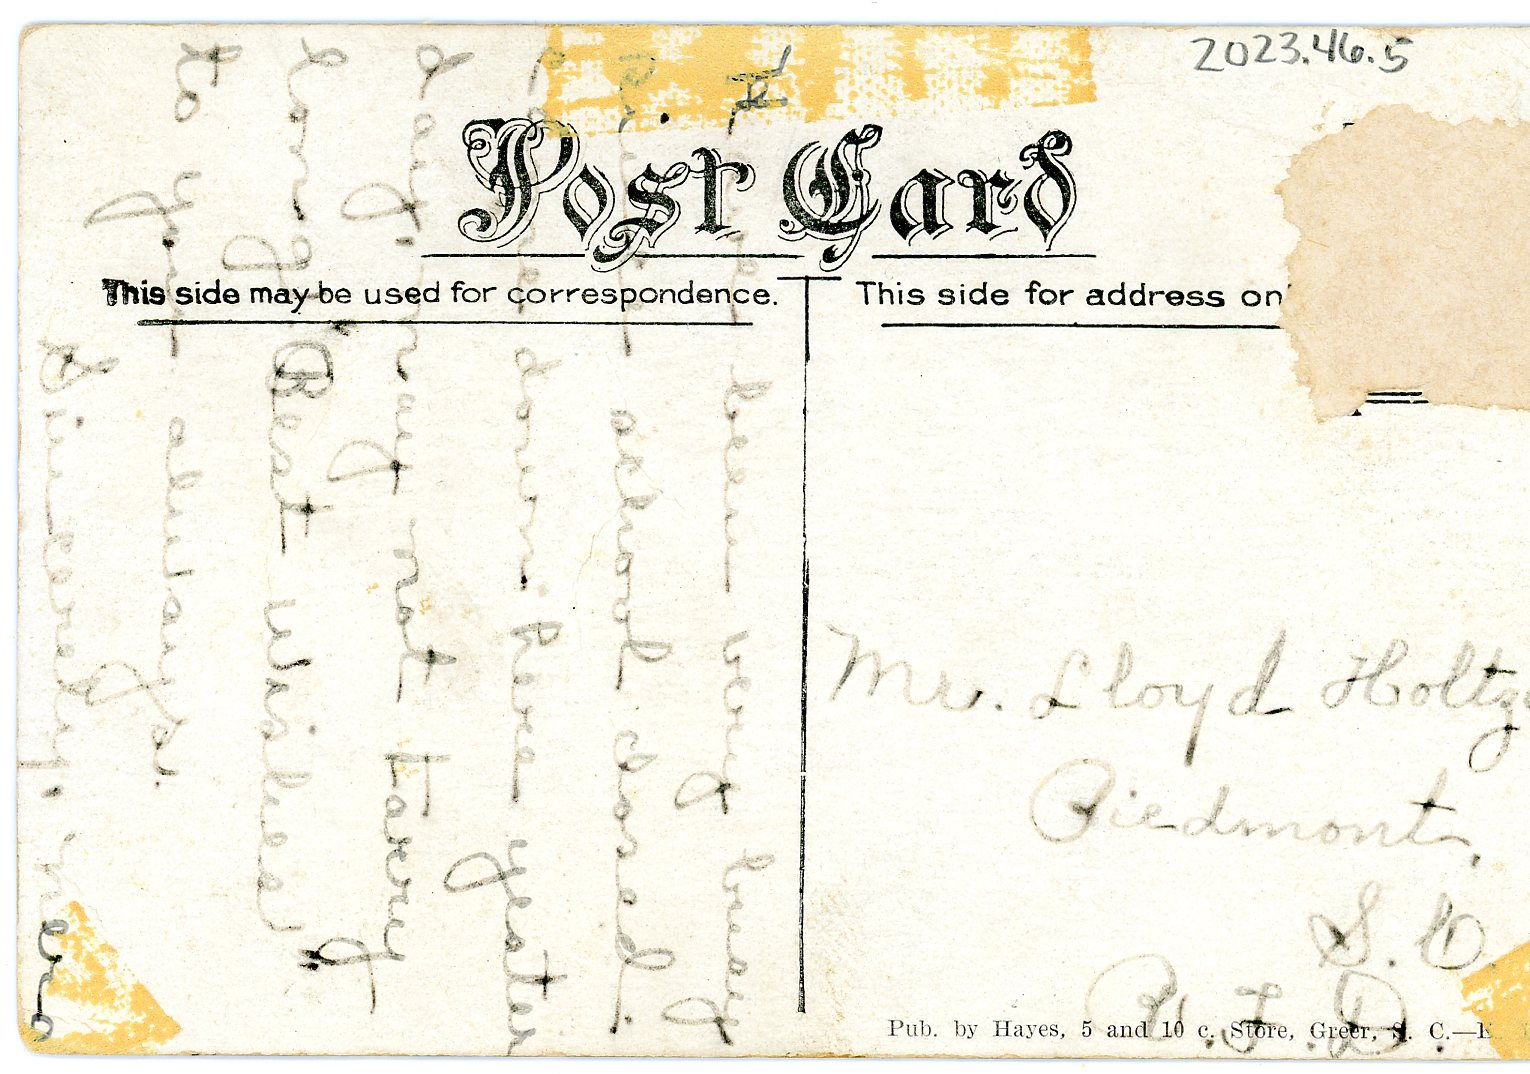 2023.46.5
Post Card
This side may be used for correspondence.
This side for address on
Have been very busy
since school closed.
Came down here yester
day, may not tarry
long. "Best wishes"
to you always.
Sincerely,
Mr. Lloyd Holtz
Piedmont,
S.C.
R.F.D.
Pub. by Hayes, 5 and 10 c. Store, Greer, S. C.—